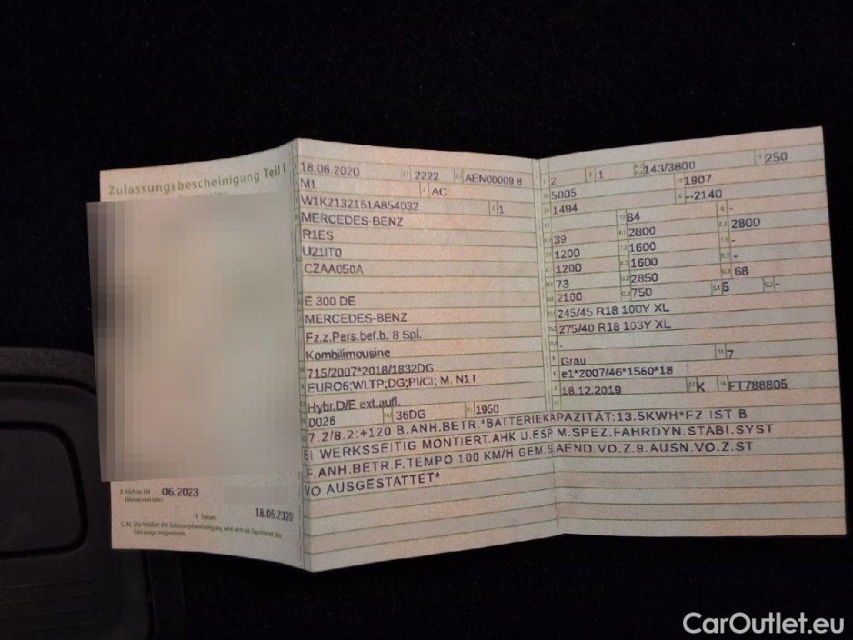 Zulassungsbescheinigung Teil I
18.06.2020 2222 AEN00009 8
M1 AC
W1K2132161A854032 1
MERCEDES-BENZ
R1ES
U21IT0
CZAA050A
E 300 DE
MERCEDES-BENZ
Fz.z.Pers.bef.b. 8 Spl.
Kombilimousine
715/2007*2018/1832DG
EURO6;WLTP;DG;PI/CI; M, N1 I
Hybr.D/E ext.aufl.
0026 36DG 1950
2 1 143/3800 250
5005 1907
1494 --2140
84 -
39 2800 2800
1200 1600 -
1200 1600 -
73 2850 68
2100 750 5 -
245/45 R18 100Y XL
275/40 R18 103Y XL
-
Grau 7
e1*2007/46*1560*18
18.12.2019 K FT788805
7.2/8.2:+120 B.ANH.BETR.*BATTERIEKAPAZITÄT:13.5KWH*FZ IST B
EI WERKSSEITIG MONTIERT.AHK U.ESP M.SPEZ.FAHRDYN.STABI.SYST
F.ANH.BETR.F.TEMPO 100 KM/H GEM.5AEND.VO.Z.9.AUSN.VO.Z.ST
VO AUSGESTATTET*
06.2023
(Monat und Jahr)
18.06.2020
CarOutlet.eu